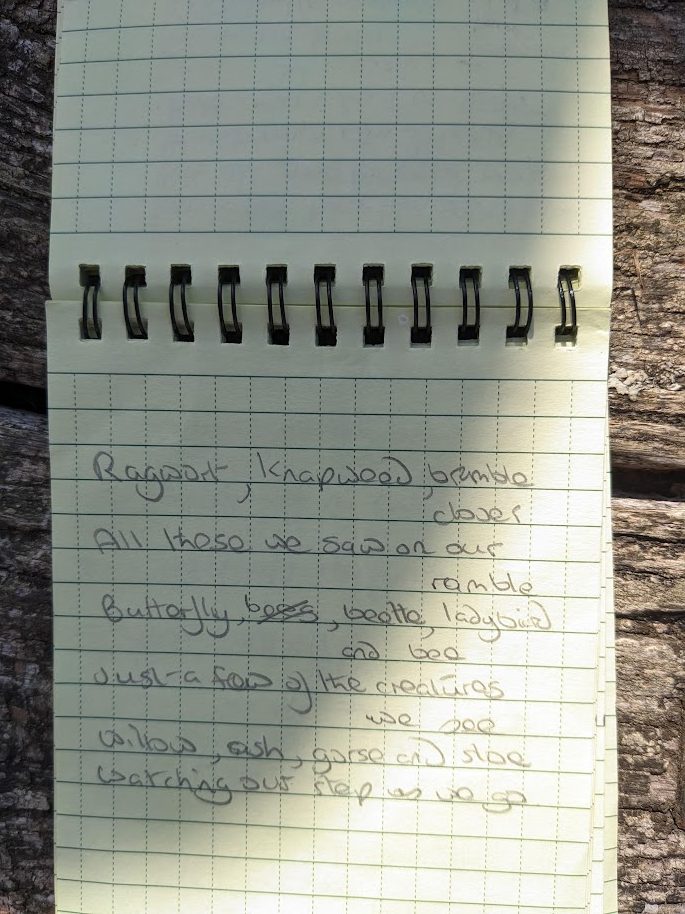 Ragwort, knapweed, bramble
clover
All these we saw on our
ramble
Butterfly, bees, beetle, ladybird
and bee
Just a few of the creatures
we see
Willow, ash, gorse and sloe
Watching our step as we go